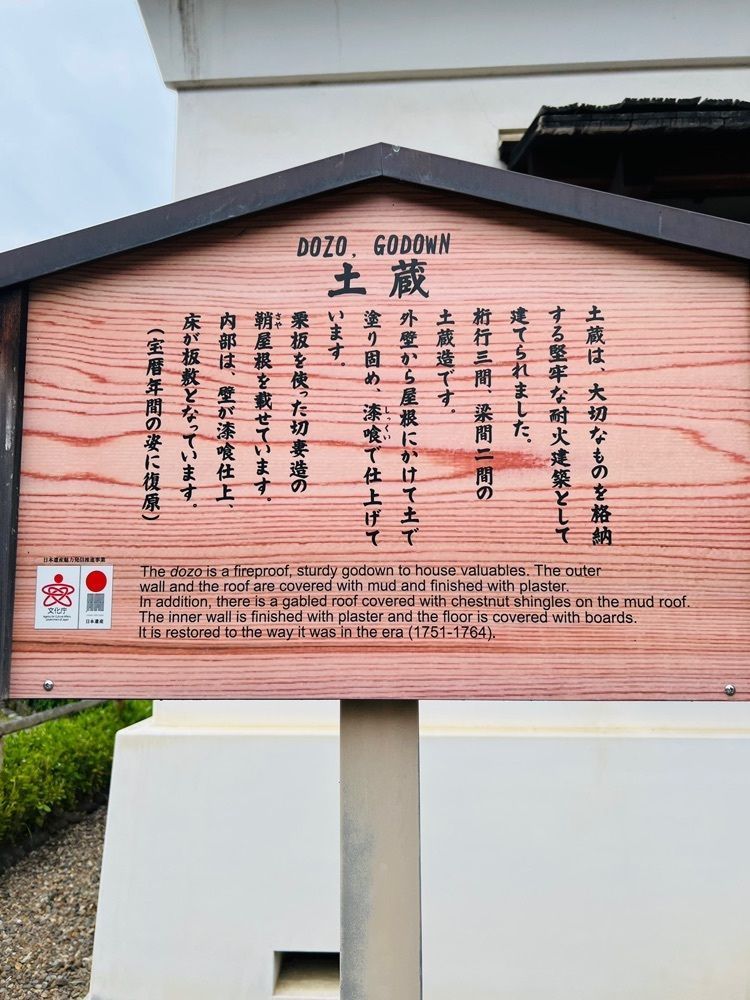 DOZO, GODOWN
土蔵
土蔵は、大切なものを格納
する堅牢な耐火建築として
建てられました。
桁行三間、梁間二間の
土蔵造です。
外壁から屋根にかけて土で
塗り固め、漆喰で仕上げて
しっくい
います。
栗板を使った切妻造の
鞘屋根を載せています。
さや
内部は、壁が漆喰仕上、
床が板敷となっています。
(宝暦年間の姿に復原)
日本遺産魅力発信推進事業
文化庁
日本遺産
The dozo is a fireproof, sturdy godown to house valuables. The outer
wall and the roof are covered with mud and finished with plaster.
In addition, there is a gabled roof covered with chestnut shingles on the mud roof.
The inner wall is finished with plaster and the floor is covered with boards.
It is restored to the way it was in the era (1751-1764).